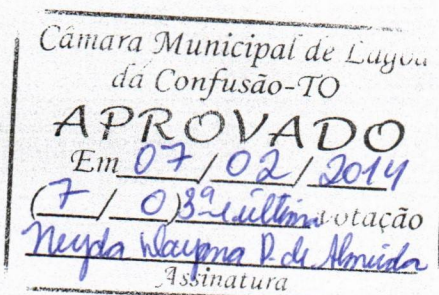 Câmara Municipal de Lagoa
da Confusão-TO
APROVADO
Em 07/02/2014
(7/0) 3ª e última votação
Neyda Wayma P. de Almeida
Assinatura